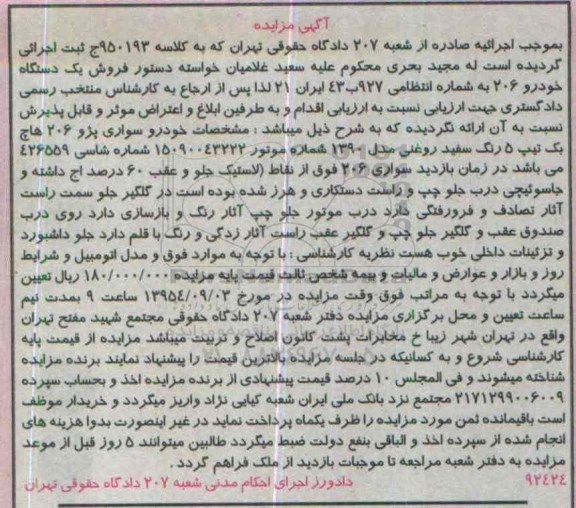 آگهی مزایده
بموجب اجرائیه صادره از شعبه ۲۰۷ دادگاه حقوقی تهران که به کلاسه ۹۵۰۱۹۳ج ثبت اجرائی
گردیده است له مجید بحری محکوم علیه سعید غلامیان خواسته دستور فروش یک دستگاه
خودرو ۲۰۶ به شماره انتظامی ۹۲۷ب۴۳ ایران ۲۱ لذا پس از ارجاع به کارشناس منتخب رسمی
دادگستری جهت ارزیابی نسبت به ارزیابی اقدام و به طرفین ابلاغ و اعتراض موثر و قابل پذیرش
نسبت به آن ارائه نگردیده که به شرح ذیل میباشد : مشخصات خودرو سواری پژو ۲۰۶ هاچ
بک تیپ ۵ رنگ سفید روغنی مدل ۱۳۹۰ شماره موتور ۱۵۰۹۰۰۴۳۲۲۲ شماره شاسی ۴۲۶۵۵۹
می باشد در زمان بازدید سواری ۲۰۶ فوق از نقاط (لاستیک جلو و عقب ۶۰ درصد اج داشته و
جاسوئیچی درب جلو چپ و راست دستکاری و هرز شده بوده است در گلگیر جلو سمت راست
آثار تصادف و فرورفتگی دارد درب موتور جلو چپ آثار رنگ و بازسازی دارد روی درب
صندوق عقب و گلگیر جلو چپ و گلگیر عقب راست آثار زدگی و رنگ با قلم دارد جلو داشبورد
و تزئینات داخلی خوب هست نظریه کارشناسی : با توجه به موارد فوق و مدل اتومبیل و شرایط
روز و بازار و عوارض و مالیات و بیمه شخص ثالث قیمت پایه مزایده ۱۸۰/۰۰۰/۰۰۰ ریال تعیین
میگردد با توجه به مراتب فوق وقت مزایده در مورخ ۱۳۹۵٤/۰۹/۰۳ ساعت ۹ بمدت نیم
ساعت تعیین و محل برگزاری مزایده دفتر شعبه ۲۰۷ دادگاه حقوقی مجتمع شهید مفتح تهران
واقع در تهران شهر زیبا خ مخابرات پشت کانون اصلاح و تربیت میباشد مزایده از قیمت پایه
کارشناسی شروع و به کسانیکه در جلسه مزایده بالاترین قیمت را پیشنهاد نمایند برنده مزایده
شناخته میشوند و فی المجلس ۱۰ درصد قیمت پیشنهادی از برنده مزایده اخذ و بحساب سپرده
۲۱۷۱۲۹۹۰۰۶۰۰۹ مجتمع نزد بانک ملی ایران شعبه کیایی نژاد واریز میگردد و خریدار موظف
است باقیمانده ثمن مورد مزایده را ظرف یکماه پرداخت نماید در غیر اینصورت بدوا هزینه های
انجام شده از سپرده اخذ و الباقی بنفع دولت ضبط میگردد طالبین میتوانند ۵ روز قبل از موعد
مزایده به دفتر شعبه مراجعه تا موجبات بازدید از ملک فراهم گردد .
۹۲۴۲۴ دادورز اجرای احکام مدنی شعبه ۲۰۷ دادگاه حقوقی تهران